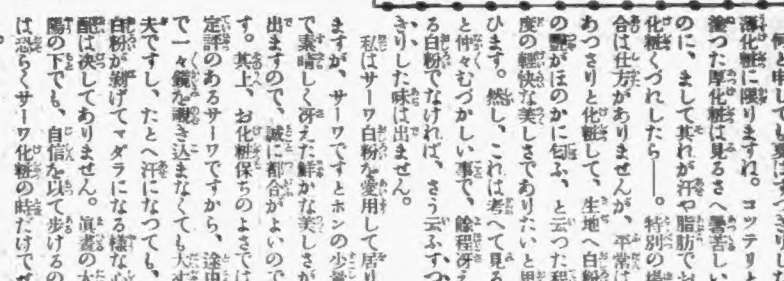 薄化粧に限りますね。コッテリと
塗つた厚化粧は見るさへ暑苦しい
のに、まして其れが汗や脂肪でお
化粧くづれしたら――。特別の場
合は仕方がありませんが、平常は
あつさりと化粧して、生地へ白粉
の艶がほのかに匂ふ、と云つた程
度の軽快な美しさでありたいと思
ひます。然し、これは考へて見る
と仲々むづかしい事で、餘程冴え
る白粉でなければ、さう云ふすつ
きりした味は出ません。
私はサーワ白粉を愛用して居り
ますが、サーワですとホンの少量
で素晴しく冴えた鮮かな美しさが
出ますので、誠に都合がよいので
す。其上、お化粧保ちのよさでは
定評のあるサーワですから、途中
で一々鏡を覗き込まなくても大丈
夫ですし、たとへ汗になつても、
白粉が剥げてマダラになる様な心
配は決してありません。眞晝の太
陽の下でも、自信を以て歩けるの
は恐らくサーワ化粧の時だけでが